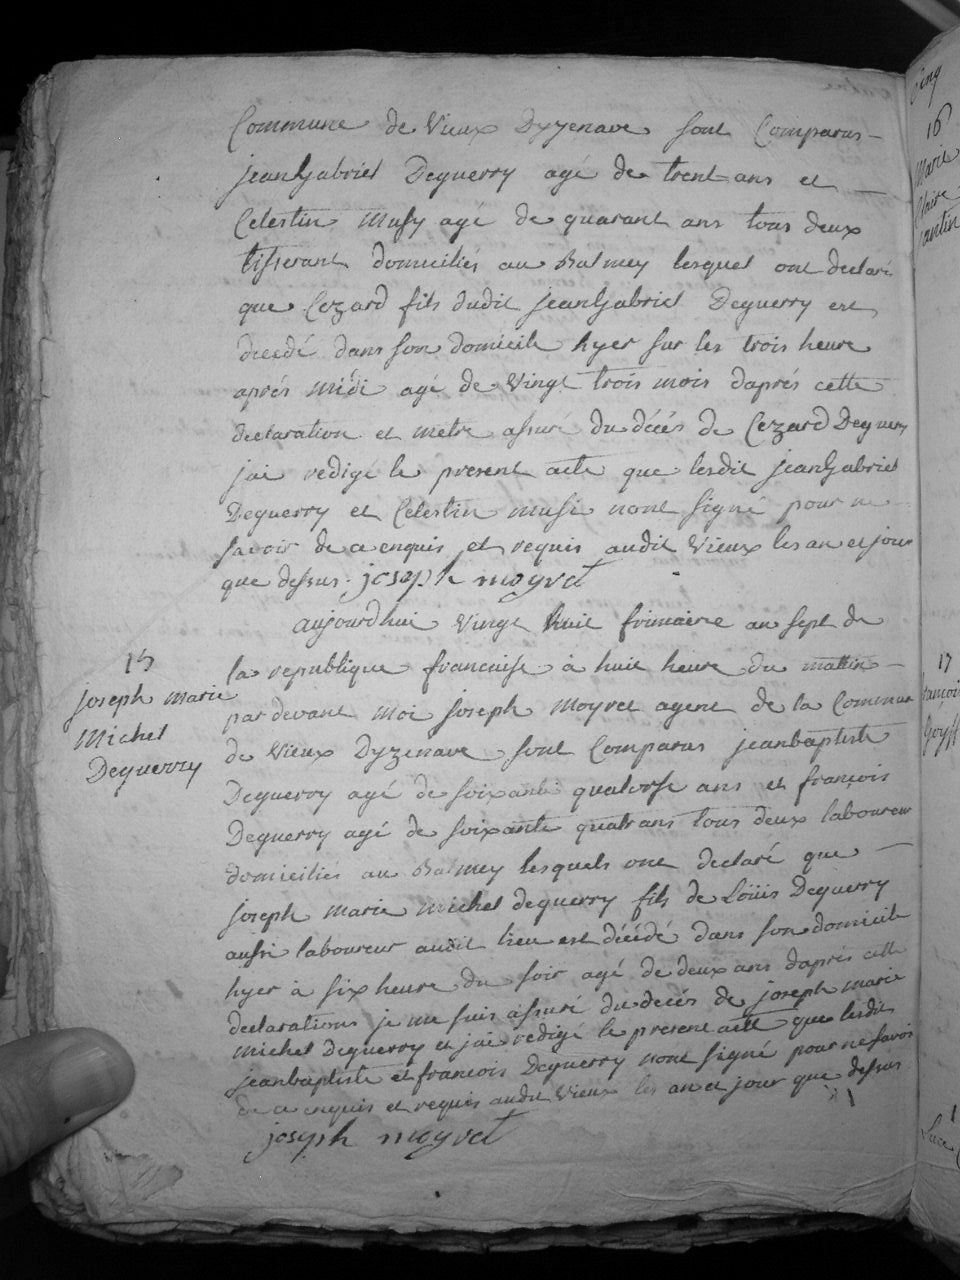 Commune de Vieux Dyzenave sont Comparus
jeanGabriel Deguerry agé de trent ans et
Celestin Musy agé de quarant ans tous deux
tisserant domiciliés au Balmey lesquel ont declaré
que Cezard fils dudit jeanGabriel Deguerry est
decedé dans son domicile hyer sur les trois heure
aprés midi agé de Vingt trois mois daprés cette
declaration et metre assuré du décés de Cezard Deguerry
jai redigé le present acte que lesdit jeanGabriel
Deguerry et Celestin musi nont signé pour ne
savoir de ce enquis et requis audit Vieux les an et jour
que dessus. joseph moyret
aujourdhui Vingt huit frimaire an sept de
15
la republique francaise à huit heure du mattin
joseph marie
pardevant moi joseph moyret agent de la Commune
Michel
de Vieux Dyzenave sont Comparus jeanbaptiste
Deguerry
Deguerry agé de soixante quatorse ans et françois
Deguerry agé de soixante quatr ans tous deux laboureur
domiciliés au Balmey lesquels ont declaré que
joseph marie michel deguerry fils de Loüis Deguerry
aussi laboureur audit lieu est décédé dans son domicile
hyer à six heure du soir agé de deux ans daprés cette
declarations je me suis assuré du decés de joseph marie
michel deguerry et jai redigé le present acte que lesdit
jeanbaptiste et francois Deguerry nont signé pour ne savoir
de ce enquis et requis audit Vieux les an et jour que dessus
joseph moyret
cinq
16
Marie
Claire
17